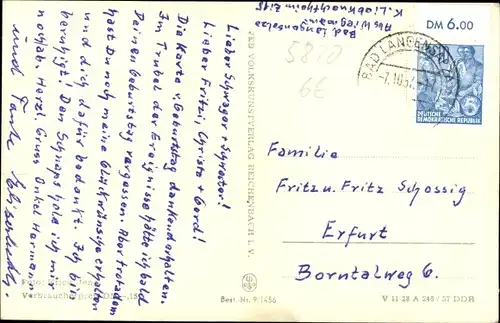 Abs. Wiegmann
Bad Langensalza
K. Liebknechtheim Z. 18
Lieber Schwager + Schwester!
Lieber Fritzi, Christa + Gerd!
Die Karte v. Geburtstag dankend erhalten.
Im Trubel der Ereignisse hätte ich bald
Deinen Geburtstag vergessen. Aber trotzdem
hast Du noch meine Glückwünsche erhalten
und dich dafür bedankt. Ich bin
beruhigt! Den Schnaps hole ich mir
nochjäh. Herzl. Gruss Onkel Hermann
und Tante Elisabeth.
Verbraucherpreis DM -,15
VEB VOLKSKUNSTVERLAG REICHENBACH I. V.
Best.-Nr. 9/1456
5820
6E
DM 6.00
BAD LANGENSALZA
-7.10.57.
DEUTSCHE
DEMOKRATISCHE REPUBLIK
5
Familie
Fritz u. Fritz Schossig
Erfurt
Borntalweg 6.
V 11 28 A 246 / 57 DDR